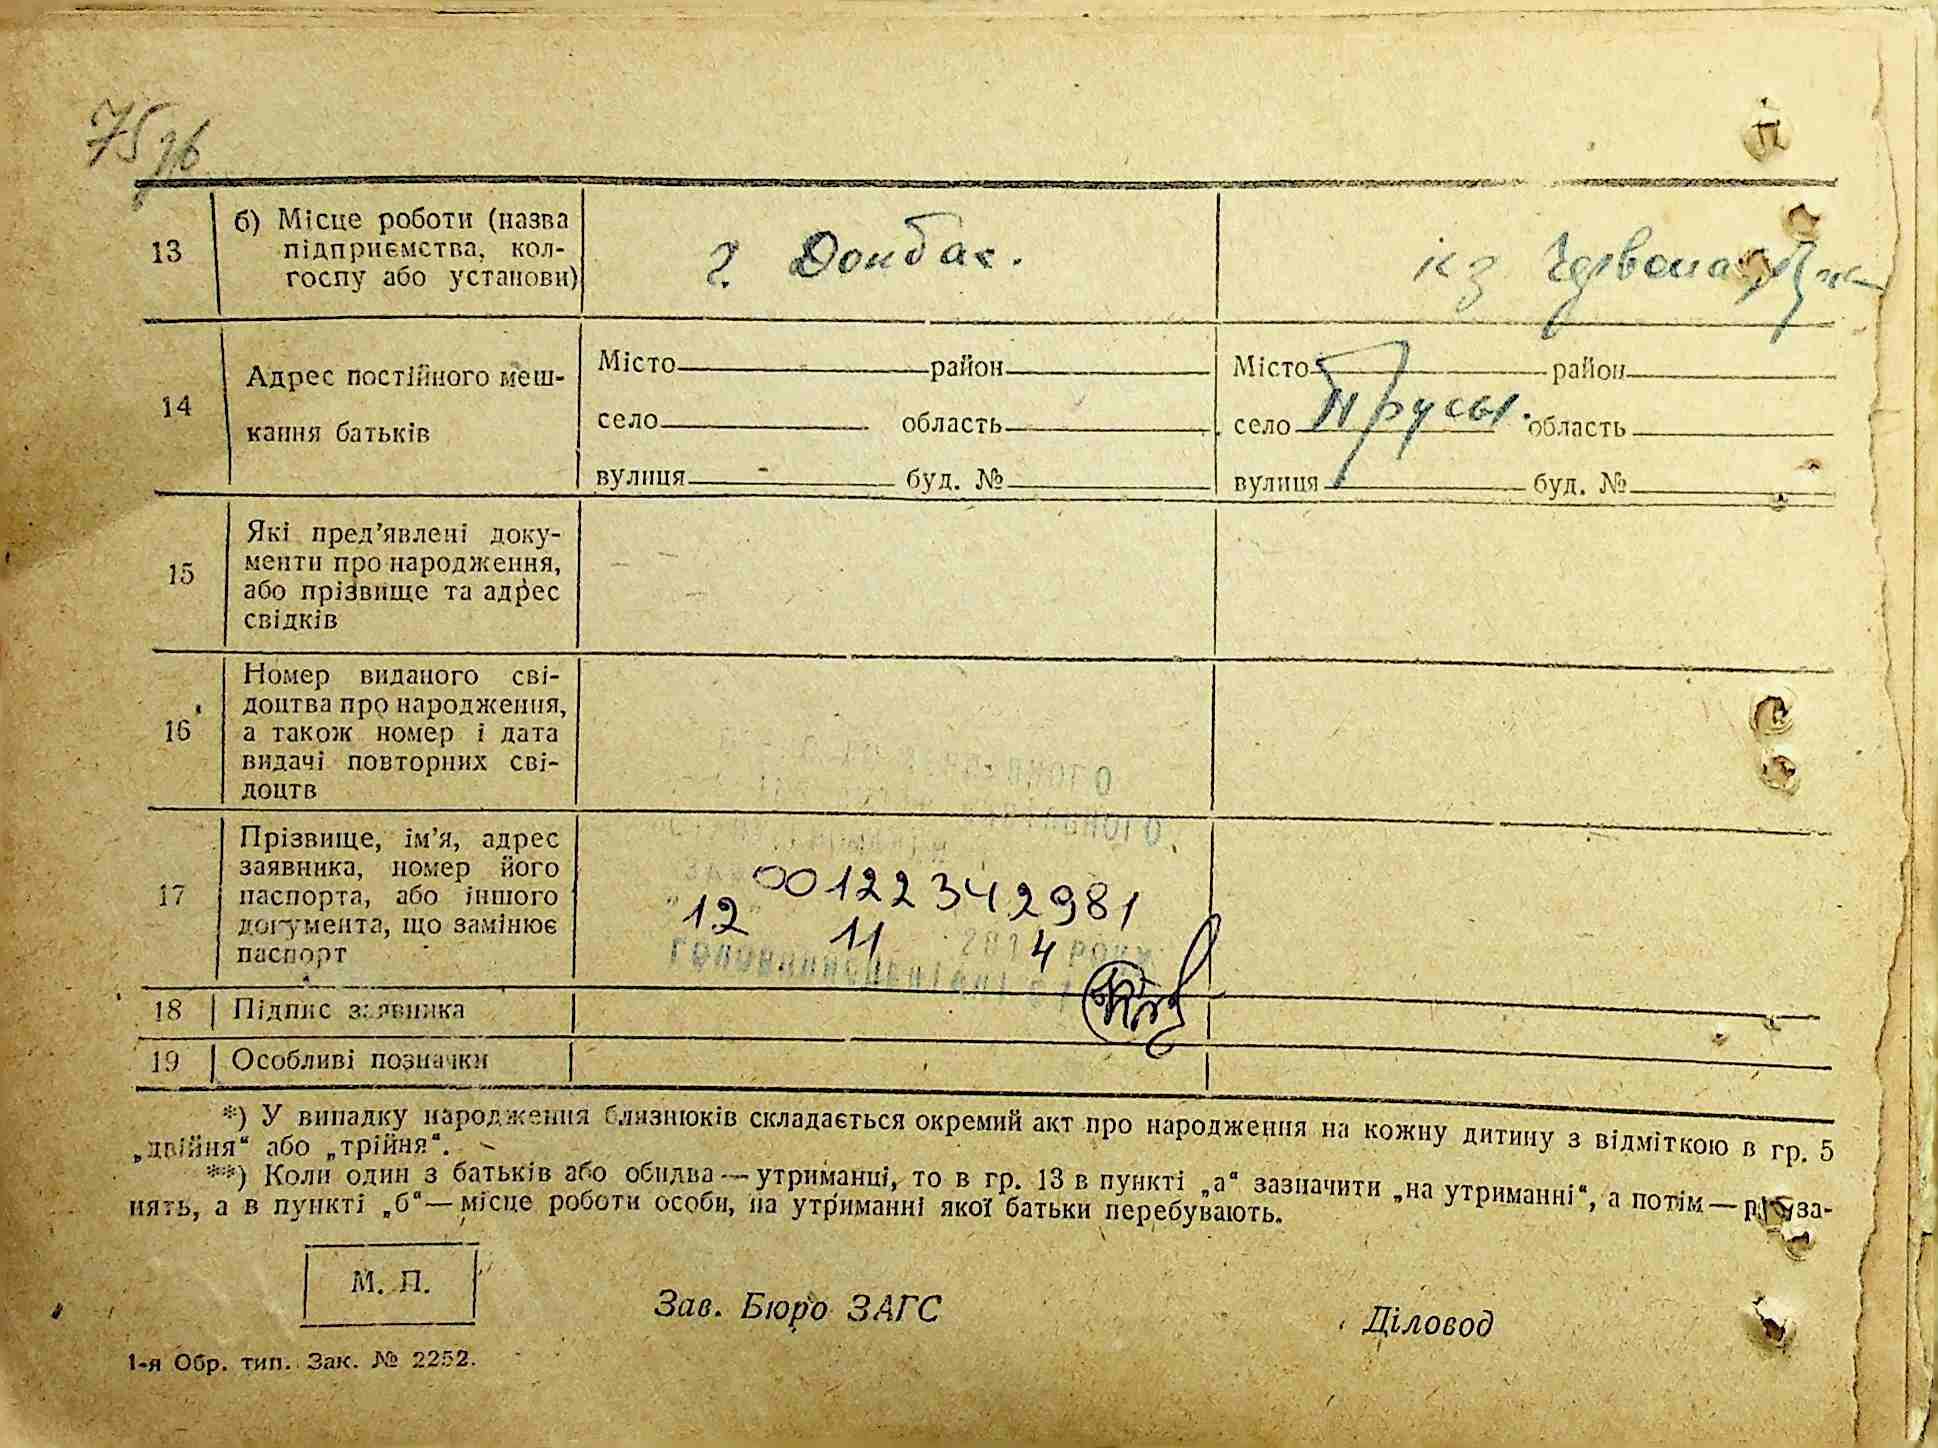 75
13
б) Місце роботи (назва
підприємства, кол-
госпу або установи)
г. Донбас.
кз Червона
14
Адрес постійного меш-
кання батьків
Місто район
село область
вулиця буд. №
Місто район
село Прусы. область
вулиця буд. №
15
Які пред’явлені доку-
менти про народження,
або прізвище та адрес
свідків
16
Номер виданого сві-
доцтва про народження,
а також номер і дата
видачі повторних сві-
доцтв
17
Прізвище, ім’я, адрес
заявника, номер його
паспорта, або іншого
документа, що замінює
паспорт
00122342981
12 11 2014 року
18 Підпис заявника
19 Особливі позначки
*) У випадку народження близнюків складається окремий акт про народження на кожну дитину з відміткою в гр. 5
„двійня“ або „трійня“.
**) Коли один з батьків або обидва — утриманці, то в гр. 13 в пункті „а“ зазначити „на утриманні“, а потім — рід за-
нять, а в пункті „б“ — місце роботи особи, на утриманні якої батьки перебувають.
М. П.
Зав. Бюро ЗАГС
Діловод
1-я Обр. тип. Зак. № 2252.